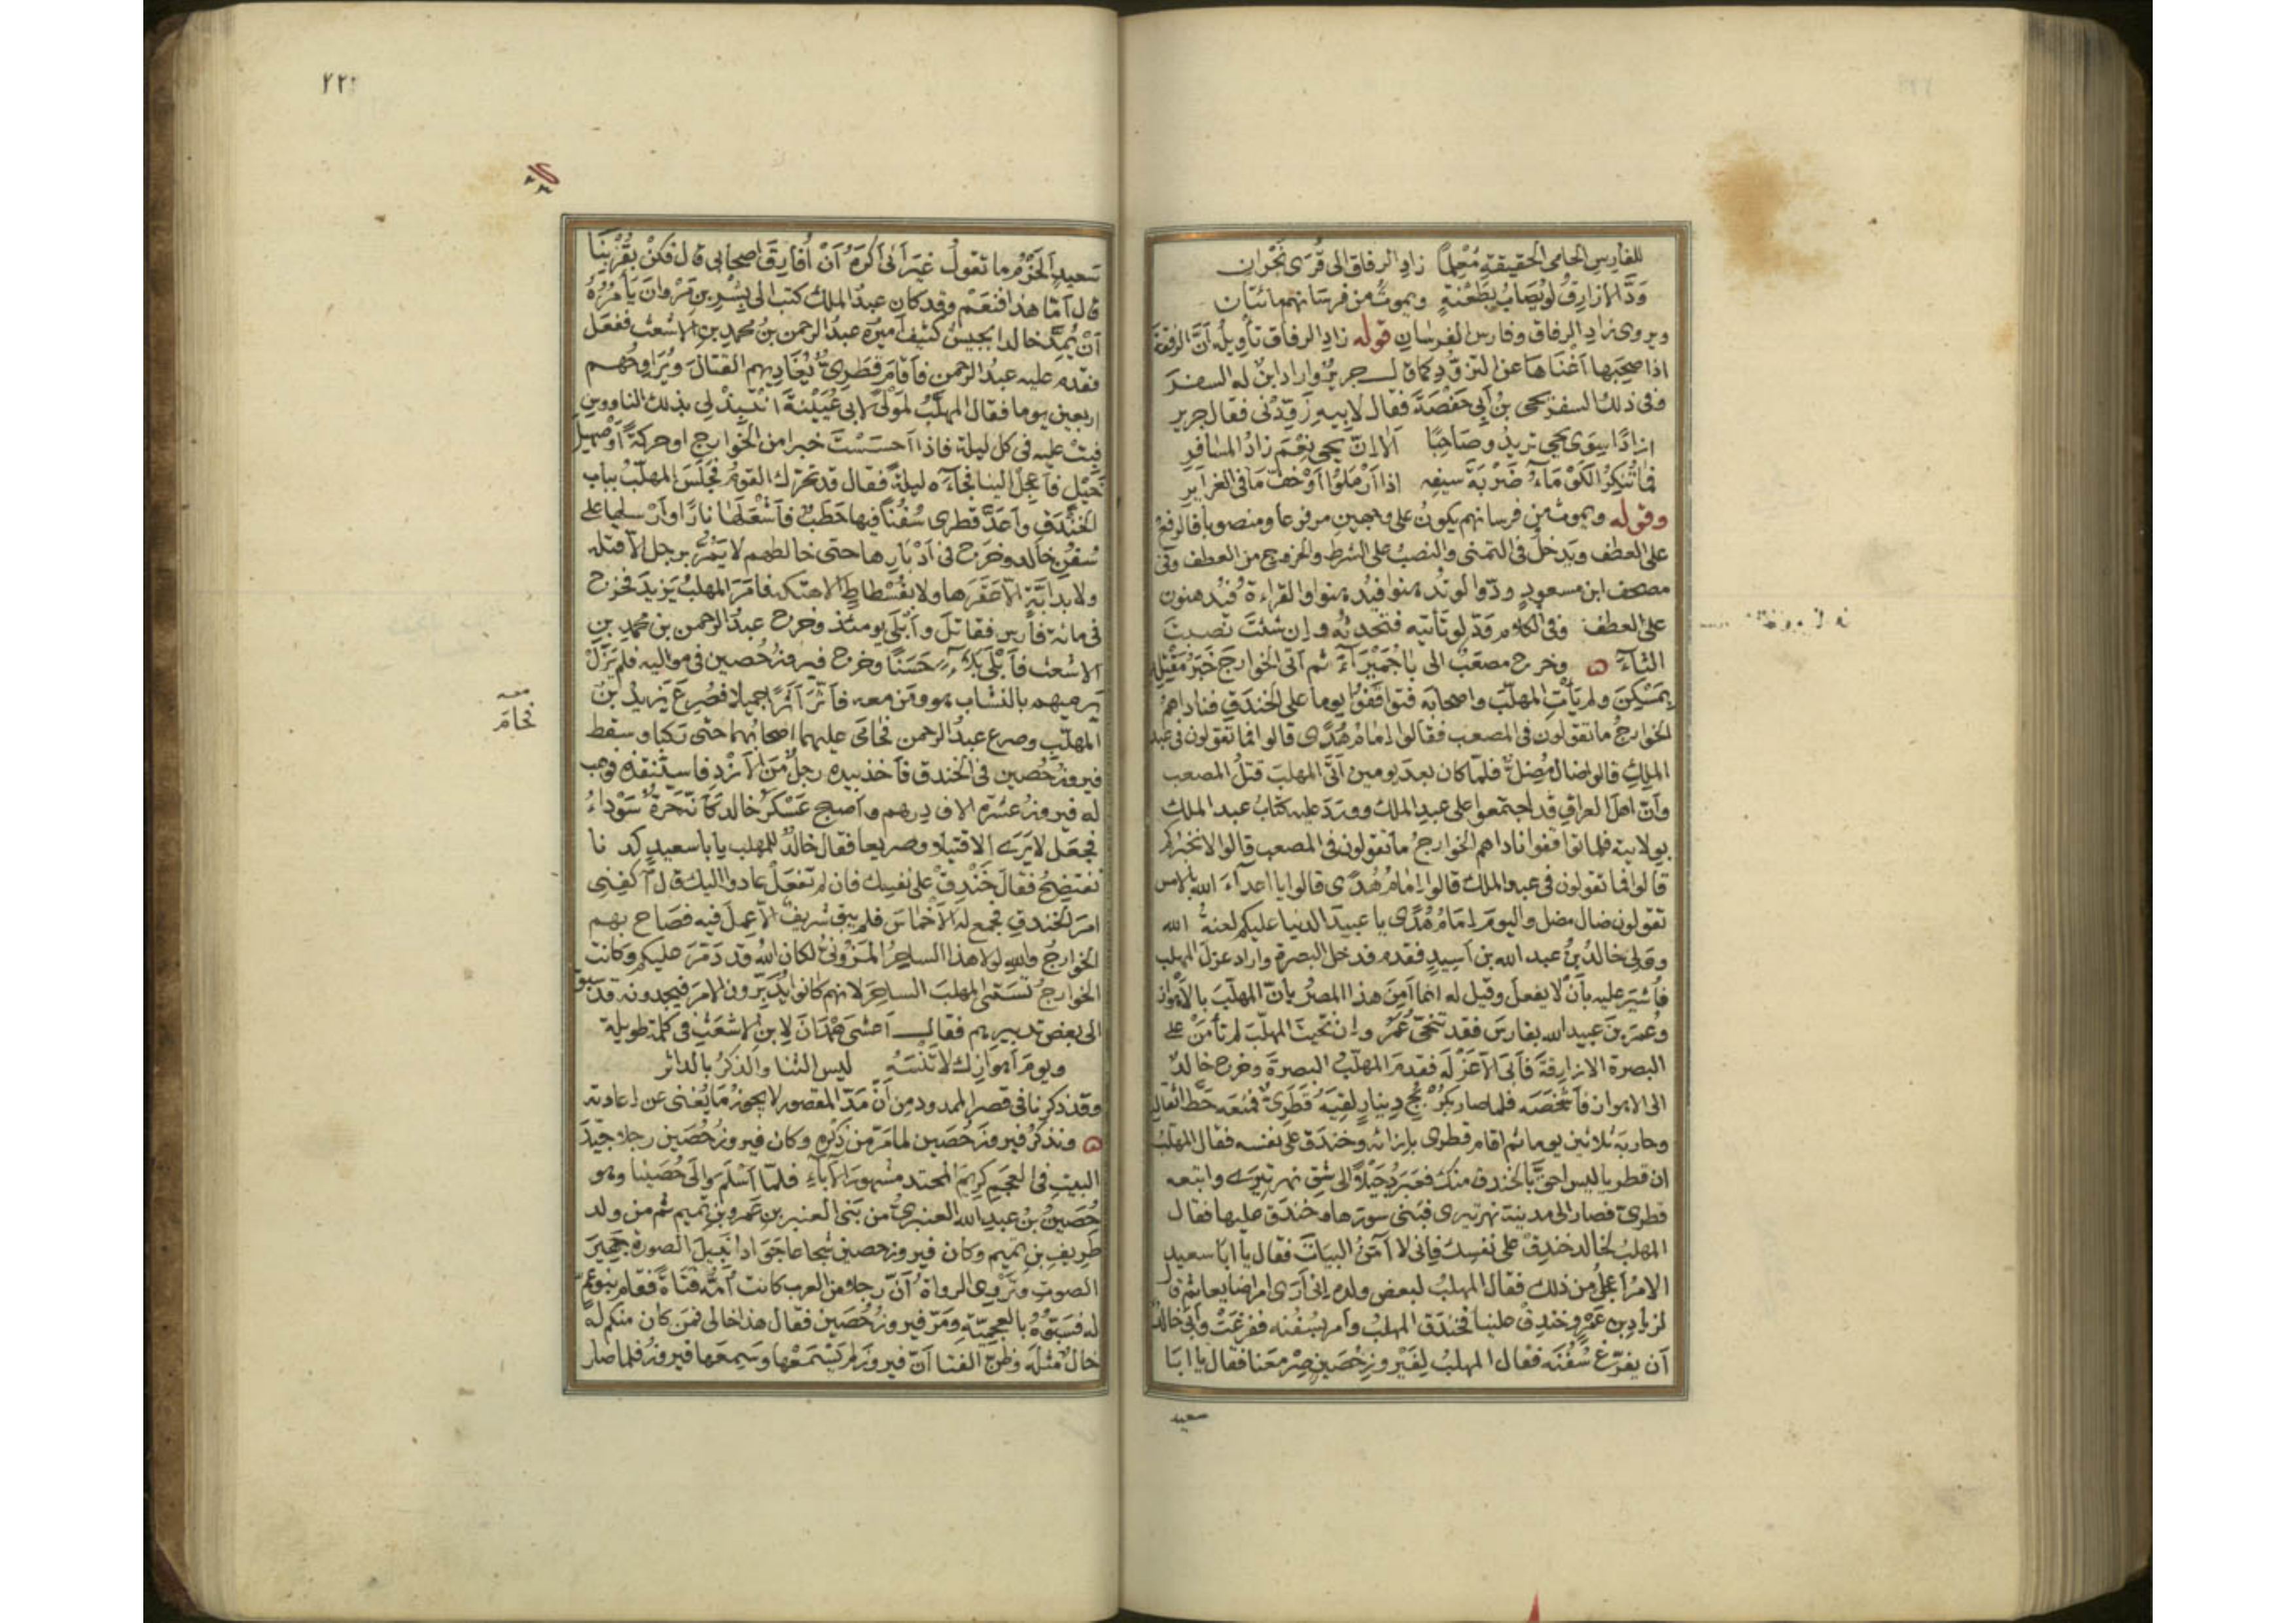 للفارس الحامى الحقيقة مُعْلِمًا زادِ الرفاق الى قُرَى نَجْران
وَدَّ الازارِقُ لو يُصَابُ بِطَعْنةٍ ويموتُ من فرسانهم مائتان
ويروى زادِ الرفاق وفارس الفرسان قوله زادِ الرفاق تأويلُه أنَّ الرفقة
اذا صحِبَها أغْنَاهَا عن التزوُّدِ كما قال جريرٌ واراد ابنٌ له السفرَ
وفى ذلك السفر يحيى بن أبى حفْصَةَ فقال لابيه زَوِّدْنى فقال جرير
ازادًا سِوَى يحيى تريدُ وصَاحِبًا ألا إنّ يحيى نِعْمَ زادُ المسافر
فما تُنكِرُ الكَوْمَاءُ ضَرْبَةَ سيفِه اذا أرْمَلُوا أوْ خَفَّ مَا فى الغرايرِ
وقوله ويموتُ من فرسانهم يكونُ على وجهين مرفوعا ومنصوبا فالرفعُ
على العطف ويَدخلُ فى التمنى والنصبُ على الشرط والخروج من العطف وفى
مصحف ابن مسعودٍ ودّوا لو تُدهنوا فيُدهنوا والقراءة فيُدهنون
على العطف وفى الكلام وَدّ لو تأتيه فتحدثُه وإن شئتَ نصبتَ
الثاءَ وخرج مصعَبٌ الى بَاجُمَيْرَاءَ ثم أتى الخوارجَ خبَرُ مَقْتَلِه
بِمَسْكِنَ ولم يأتِ المهلّبَ واصحابَه فتواقَفُوا يوما على الخندق فناداهمُ
الخوارجُ ما تقولون فى المصعب فقالوا إمامُ هُدًى قالوا فما تقولون فى عبد
الملكِ قالوا ضالٌّ مُضِلٌّ فلمّا كان بعدَ يومين أتَى المهلبَ قتلُ المصعب
وأنّ اهلَ العراقِ قد اجتمعوا على عبدِ الملك ووردَ عليه كتابُ عبد الملك
بولايته فلما تواقفوا ناداهم الخوارجُ ما تقولون فى المصعب قالوا لا نخبركم
قالوا فما تقولون فى عبد الملك قالوا إمامُ هُدًى قالوا يا اعداءَ الله بالامس
تقولون ضال مضل واليومَ إمَامُ هُدًى يا عبيدَ الدنيا عليكم لعنةُ الله
وولِى خالدُ بنُ عبد الله بن أسيدٍ فقدم فدخل البصرة واراد عزلَ المهلب
فأُشيرَ عليه بأنْ لا يفعلَ وقيل له انما أمِنَ هذا المصرُ بأنّ المهلّبَ بالأهواز
وعُمرَ بنَ عبيد الله بفارسَ فقد تنحّى عُمَرُ وإن نحّيتَ المهلّبَ لم تأمَنْ على
البصرة الازارقةَ فأبَى الا عَزْلَه فقدمَ المهلبُ البصرةَ وخرج خالدٌ
الى الاهواز فأشْخَصَه فلما صار بكُرْبُجِ دينارٍ لقِيَهُ قَطَرِىٌّ فمنعَه حَطَّ اثقاله
وحاربَهُ ثلاثين يوما ثم اقام قطرى بإزائه وخندَق على نفسه فقال المهلبُ
ان قطريا ليس احقَّ بالخندق منك فعَبَر دُجَيْلًا الى شِقِّ نهرِ تِيرَى واتبعه
قطرىّ فصار الى مدينة نهر تيرى فبنى سورَها وخندَق عليها فقال
المهلبُ لخالد خندِقْ على نفسِك فإنى لا آمَنُ البياتَ فقال يا ابا سعيد
الامرُ أعجلُ من ذلك فقال المهلبُ لبعض ولده إنى أرَى امرا ضايعا ثم قال
لزيادِ بن عَمْرٍو خندِقْ علينا فخندَق المهلبُ وأمر بسُفُنه ففُرغَتْ وأبَى خالدٌ
أن يفرّغ سُفُنَه فقال المهلبُ لِفَيْروز حُصَينٍ صِرْ معَنا فقال يا ابا
سعيد
٢٢١
سعيدٍ الحَزْمُ ما تقولُ غيرَ أنّى أكرَهُ أنْ أُفارِقَ اصحابى قال فكنْ بقُرْبِنَا
قال أمّا هذا فنَعَمْ وقد كان عبدُ الملك كتب الى بِشْرِ بنِ مَرْوانَ يأمُرُهُ
أنْ يُمِدَّ خالدا بجيش كثيفٍ أميرُه عبدُ الرحمن بنُ محمدِ بنِ الاشعث ففعَل
فقدم عليه عبدُ الرحمن فأقامَ قَطَرِىٌّ يُغادِيهم القتالَ ويُرَاوِحُهم
اربعين يوما فقال المهلّبُ لمَوْلًى لابى عُيَيْنةَ انْتَبِذْ الى ذلك الناووسِ
فبِتْ عليه فى كل ليلة فاذا أحسَسْتَ خبرا من الخوارج او حركةً أوْ صهيلَ
خيْلٍ فأعجِلْ الينا فجاءه ليلةً فقال قد تحرّك القومُ فجلَسَ المهلّبُ بباب
الخندَقِ وأعدَّ قطرى سُفُنًا فيها حَطَبٌ فأشْعَلَها نارًا وأرْسلها على
سُفُنِ خالد وخرَج فى أدْبَارِها حتى خالطهم لا يَمُرُّ برجل إلا قتله
ولا بدابّةٍ الا عَقَرَها ولا بفُسْطاطٍ الا هتكه فأمَرَ المهلبُ يزيدَ فخرج
فى مائة فارس فقاتلَ وأبْلَى يومئذ وخرج عبدُ الرحمن بن محمدِ بنِ
الاشعث فأبْلَى بَلاءً حَسَنًا وخرج فيروزُ حُصين فى مواليه فلم يَزَلْ
يرميهم بالنشّاب هو ومَن معه فأثّرَ أثَرًا جميلا فصُرِعَ يزيدُ بنُ
المهلّبِ وصُرع عبدُ الرحمن فحامَى عليهما اصحابُهما حتى ركبا وسقط
فيروزُ حُصين فى الخندق فأخذ بيده رجلٌ منَ الأزْدِ فاستنقذه فوهب
له فيروزُ عشرةَ الاف درهم وأصبح عَسْكَرُ خالد كأنّه حَرّةٌ سَوْداءُ
فجعَل لا يَرَى الا قتيلا وصريعا فقال خالدٌ للمهلب يا با سعيدٍ كدنا
نفتَضِحُ فقال خَنْدِقْ على نفسِك فان لم تفعَلْ عادوا اليك قال اكفِنى
امرَ الخندقِ فجمع له الأخماسَ فلم يبق شريفٌ الا عمِلَ فيه فصاح بهم
الخوارجُ والله لولا هذا الساحرُ المَزُونِىُّ لكان اللهُ قد دمّرَ عليكم وكانت
الخوارجُ تسمّى المهلبَ الساحرَ لانهم كانوا يُدَبّرون الامرَ فيجدونه قد سبَقَ
الى بعض تدبيرهم فقال أعشَى هَمْدَانَ لابنِ الاشعَثِ فى كلمة طويلة
ويومَ أهوازِك لا تَنْسَهُ ليس الثنا والذكرُ بالداثر
وقد ذكرنا فى قصر الممدود من أنّ مَدّ المقصور لا يجوز مَا يُغنى عن إعادته
ونذكُرُ فيروزَ حُصَين لما مَرّ من ذكره وكان فيروزُ حُصَين رجلا جيّدَ
البيتِ فى العجَم كريمَ المحتد مشهورَ الآباءِ فلمّا أسْلَم والَى حُصَينا وهو
حُصَينُ بنُ عبدِ الله العنبرىُّ من بَنى العنبرِ بنِ عَمرِو بنِ تميم ثم من ولد
طَرِيفِ بنِ تميم وكان فيروز حصين شجاعا جوَادا نبيلَ الصورة جَهيرَ
الصوتِ وتَرْوى الرواةُ أنّ رجلا من العرب كانت أمّه فتَاةً فقام بنو عمٍّ
له فسَبّوُه بالعجميّة ومَرّ فيروزُ حُصَين فقال هذا خالى فمن كان منكم له
خالٌ مثلُه وظنّ الفتى أنّ فيروزَ لم يسْمَعْها وسمِعَها فيروزُ فلما صار
معه
فحامَى